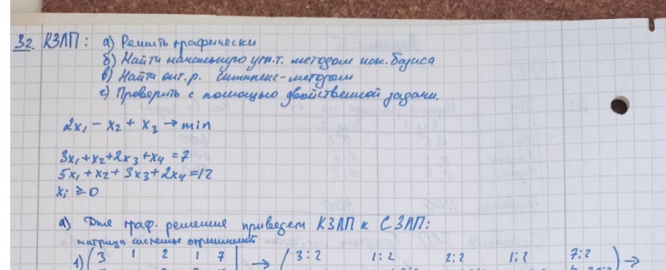 32. КЗЛП: а) Решить графически
б) Найти начальную угл.т. методом иск. базиса
в) Найти опт.р. симплекс-методом
г) Проверить с помощью двойственной задачи.
2x₁ - x₂ + x₃ → min
3x₁+x₂+2x₃+x₄=7
5x₁+x₂+3x₃+2x₄=12
xᵢ ≥ 0
а) Для граф. решения приведем КЗЛП к СЗЛП:
матрица системы ограничений
1) ( 3 1 2 1 | 7 ) → ( 3:2 1:2 2:2 1:2 7:2 ) →